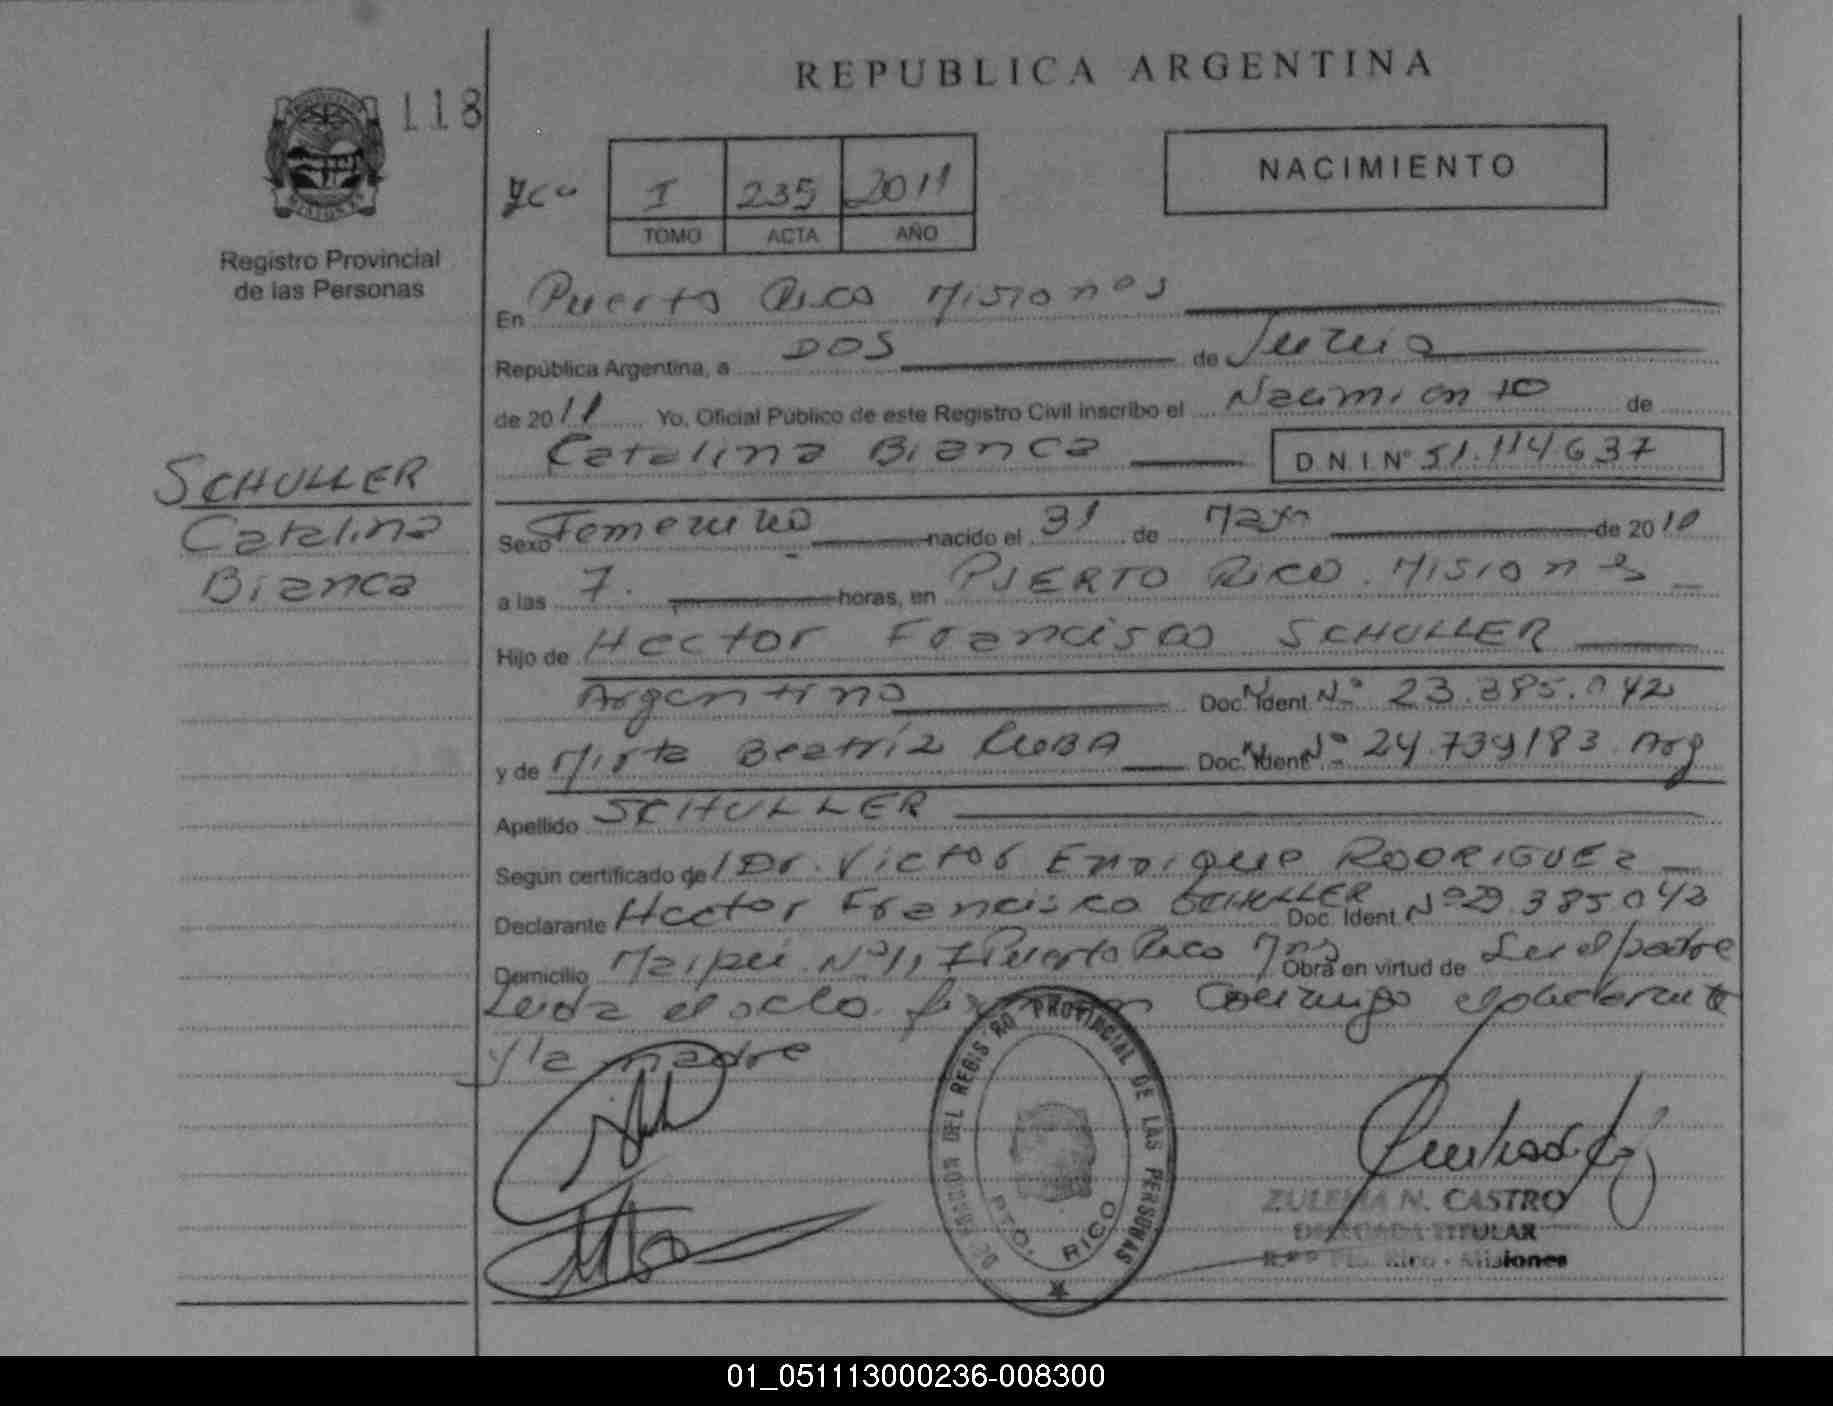 REPUBLICA ARGENTINA
118
NACIMIENTO
I 235 2011
TOMO ACTA AÑO
Registro Provincial
de las Personas
En Puerto Rico Misiones
República Argentina, a DOS de Junio
de 2011 Yo, Oficial Público de este Registro Civil inscribo el Nacimiento de
Catalina Bianca D.N.I.Nº 51.114637
SCHULLER
Catalina
Bianca
Sexo Femenino nacido el 31 de Mayo de 20
a las 7. horas, en PUERTO RICO. Misiones
Hijo de Hector Francisco SCHULLER
Argentino Doc. Ident. Nº 23.385.042
y de Mirta Beatriz Doc. Ident Nº 24.739183 Arg
Apellido SCHULLER
Según certificado de Dr. Victor Enrique RODRIGUEZ
Declarante Hector Francisco SCHULLER Doc. Ident. Nº 23.385042
Domicilio Maipú Nº Puerto Rico Mns Obra en virtud de Ser el padre
Leida el acta firman Conmigo el declarante
y la madre
DEL REGISTRO PROVINCIAL DE LAS PERSONAS
PTO. RICO
ZULEMA N. CASTRO
DELEGADA TITULAR
R.P.P. Pto. Rico - Misiones
01_051113000236-008300